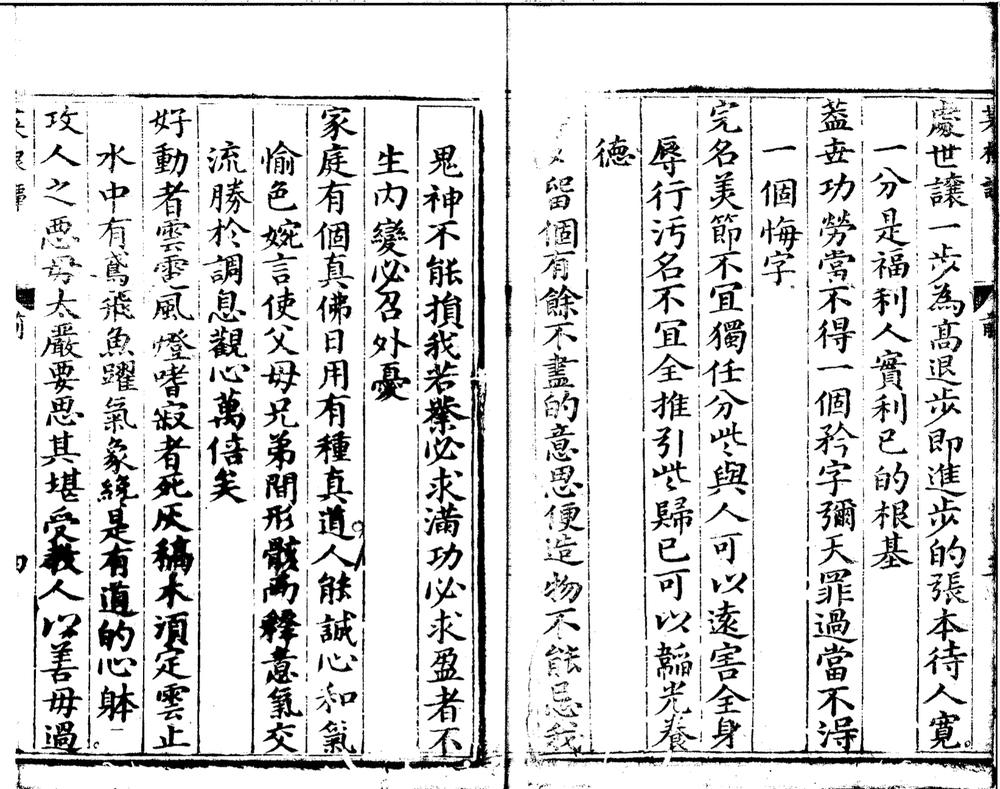 菜根譚
處世讓一步為高退步即進步的張本待人寬
一分是福利人實利己的根基
蓋世功勞當不得一個矜字彌天罪過當不得
一個悔字
完名美節不宜獨任分些與人可以遠害全身
辱行污名不宜全推引些歸己可以韜光養
德
留個有餘不盡的意思便造物不能忌我
鬼神不能損我若業必求滿功必求盈者不
生內變必召外憂
家庭有個真佛日用有種真道人能誠心和氣
愉色婉言使父母兄弟間形骸兩釋意氣交
流勝於調息觀心萬倍矣
好動者雲電風燈嗜寂者死灰稿木須定雲止
水中有鳶飛魚躍氣象纔是有道的心躰
攻人之惡毋太嚴要思其堪受教人以善毋過
菜根譚 前 四